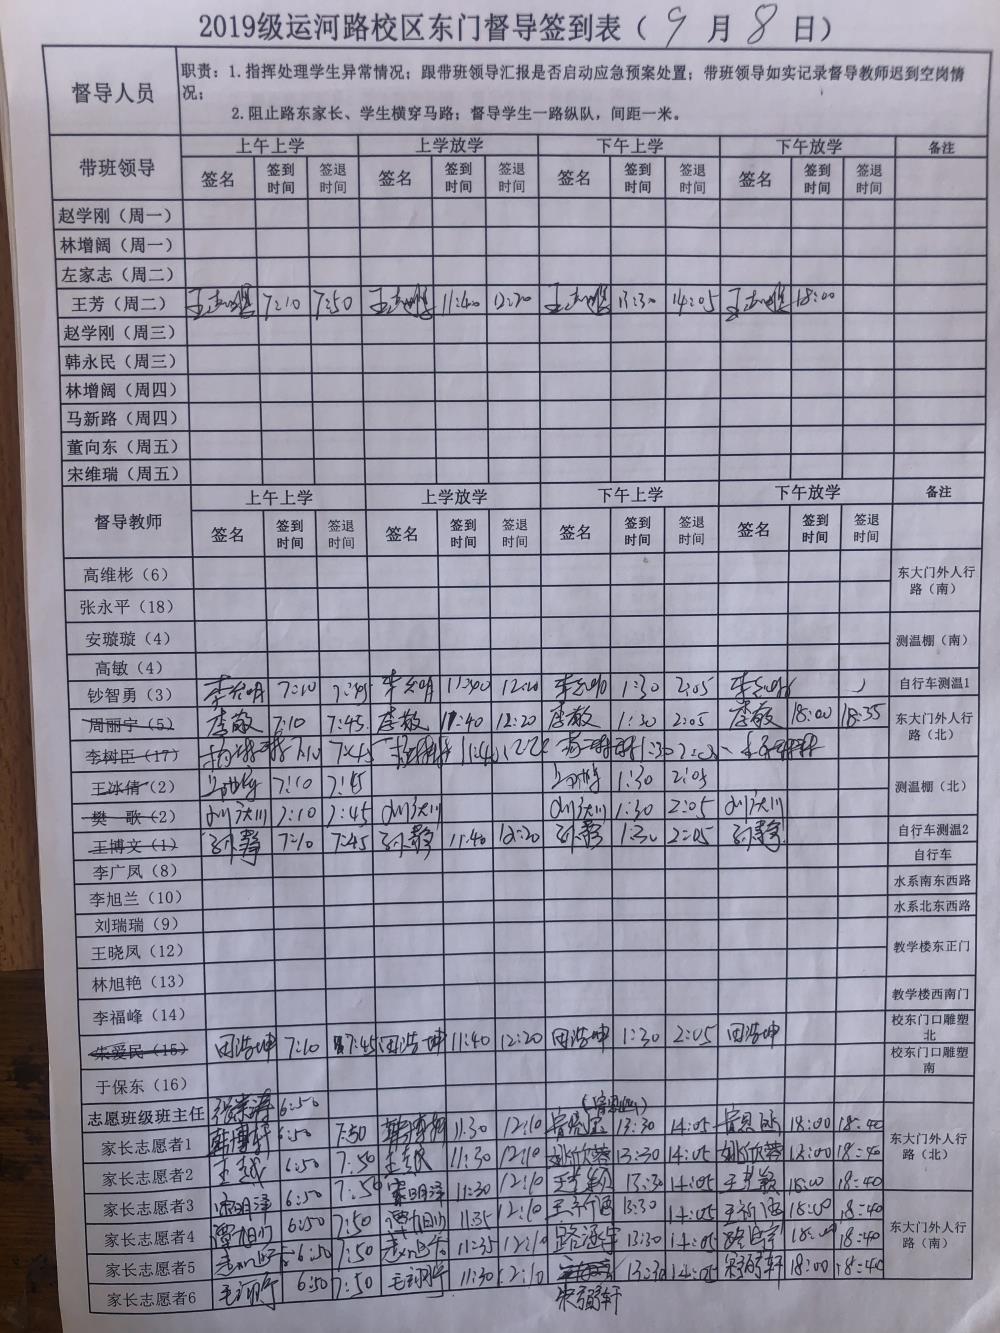 2019级运河路校区东门督导签到表（9月8日）
督导人员 职责：1.指挥处理学生异常情况；跟带班领导汇报是否启动应急预案处置；带班领导如实记录督导教师迟到空岗情
况；
2.阻止路东家长、学生横穿马路；督导学生一路纵队，间距一米。
带班领导 上午上学 上学放学 下午上学 下午放学 备注
签名 签到时间 签退时间 签名 签到时间 签退时间 签名 签到时间 签退时间 签名 签到时间 签退时间
赵学刚（周一）
林增阔（周一）
左家志（周二）
王芳（周二） 7:10 7:50 11:40 12:20 13:30 14:05 18:00
赵学刚（周三）
韩永民（周三）
林增阔（周四）
马新路（周四）
董向东（周五）
宋维瑞（周五）
督导教师 上午上学 上学放学 下午上学 下午放学 备注
签名 签到时间 签退时间 签名 签到时间 签退时间 签名 签到时间 签退时间 签名 签到时间 签退时间
高维彬（6） 东大门外人行路（南）
张永平（18）
安璇璇（4） 测温棚（南）
高敏（4）
钞智勇（3） 7:10 7:45 11:40 12:20 1:30 2:05 自行车测温1
周丽宁（5） 李敬 7:10 7:45 李敬 11:40 12:20 李敬 1:30 2:05 李敬 18:00 18:35 东大门外人行路（北）
李树臣（17） 7:10 7:45 11:40 1:30
王冰倩（2） 7:10 7:45 1:30 2:05 测温棚（北）
樊 歌（2） 7:10 7:45 1:30 2:05
王博文（1） 孙静 7:10 7:45 孙静 11:40 12:20 孙静 1:30 2:05 孙静 自行车测温2
李广凤（8） 自行车
李旭兰（10） 水系南东西路
刘瑞瑞（9） 水系北东西路
王晓凤（12） 教学楼东正门
林旭艳（13）
李福峰（14） 教学楼西南门
朱爱民（15） 田浩坤 7:10 7:45 田浩坤 11:40 12:20 田浩坤 1:30 2:05 田浩坤 校东门口雕塑北
于保东（16） 校东门口雕塑南
志愿班级班主任 6:50
家长志愿者1 韩博轩 6:50 7:50 11:30 12:10 13:30 14:05 18:00 18:40 东大门外人行路（北）
家长志愿者2 王越 6:50 7:50 王越 11:30 12:10 姚欣蓉 13:30 14:05 姚欣蓉 18:00 18:40
家长志愿者3 宋明泽 6:50 7:50 宋明泽 11:30 12:10 王梦颖 13:30 14:05 王梦颖 18:00 18:40
家长志愿者4 6:50 7:50 11:35 12:10 王祈涵 13:30 14:05 王祈涵 18:00 18:40 东大门外人行路（南）
家长志愿者5 6:50 7:50 11:35 12:10 路涵宇 13:30 14:05 18:00 18:40
家长志愿者6 6:50 7:50 11:30 12:10 13:30 14:05 18:00 18:40